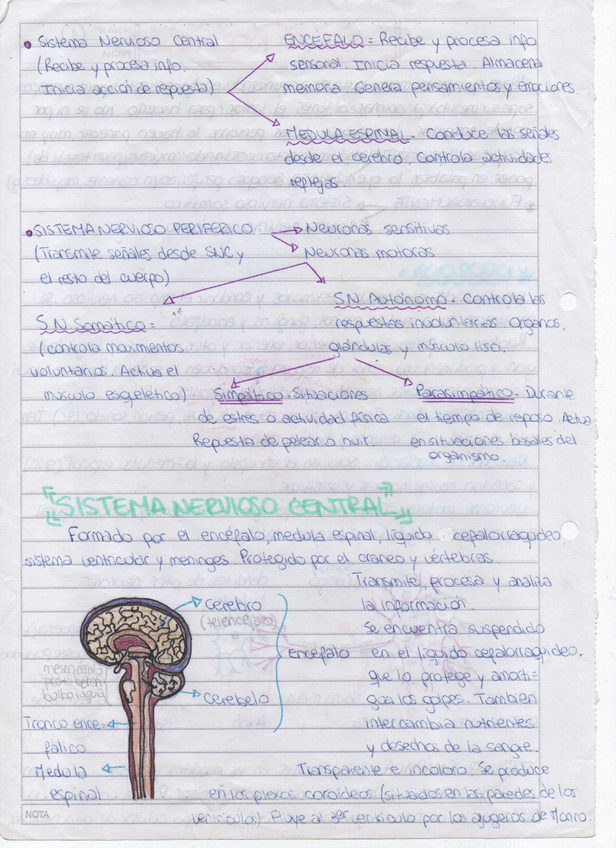 • Sistema Nervioso Central
(Recibe y procesa info.
Inicia acción de repuesta)
ENCÉFALO = Recibe y procesa info
sensorial. Inicia respuesta. Almacena
memoria. Genera pensamientos y emociones
MEDULA ESPINAL. Conduce las señales
desde el cerebro. Controla actividades
reflejas.
• SISTEMA NERVIOSO PERIFERICO
(Transmite señales desde SNC y
el resto del cuerpo)
Neuronas sensitivas
Neuronas motoras
S.N. Somático =
(controla movimientos
voluntarios. Activa el
musculo esquelético)
S.N. Autónomo. Controla las
respuestas involuntarias. Organos,
glándulas y músculo liso.
Simpático. Situaciones
de estres o actividad física
Repuesta de pelear o huir
Parasimpático. Durante
el tiempo de reposo. Activa
en situaciones basales del
organismo.
SISTEMA NERVIOSO CENTRAL
Formado por el encéfalo, medula espinal, líquido cefalorraquideo
sistema ventricular y meninges. Protegido por el craneo y vértebras.
Cerebro
(telencéfalo)
Cerebelo
encéfalo
Tronco ence-
fálico
Medula
espinal
Transmite, procesa y analiza
la información.
Se encuentra suspendido
en el líquido cefalorraquideo,
que lo protege y amorti-
gua los golpes. Tambien
intercambia nutrientes
y desechos de la sangre.
Transparente e incoloro. Se produce
en los plexos coroideos (situados en las paredes de los
ventrículos) Fluye al 3er ventrículo por los agujeros de Monro.
NOTA